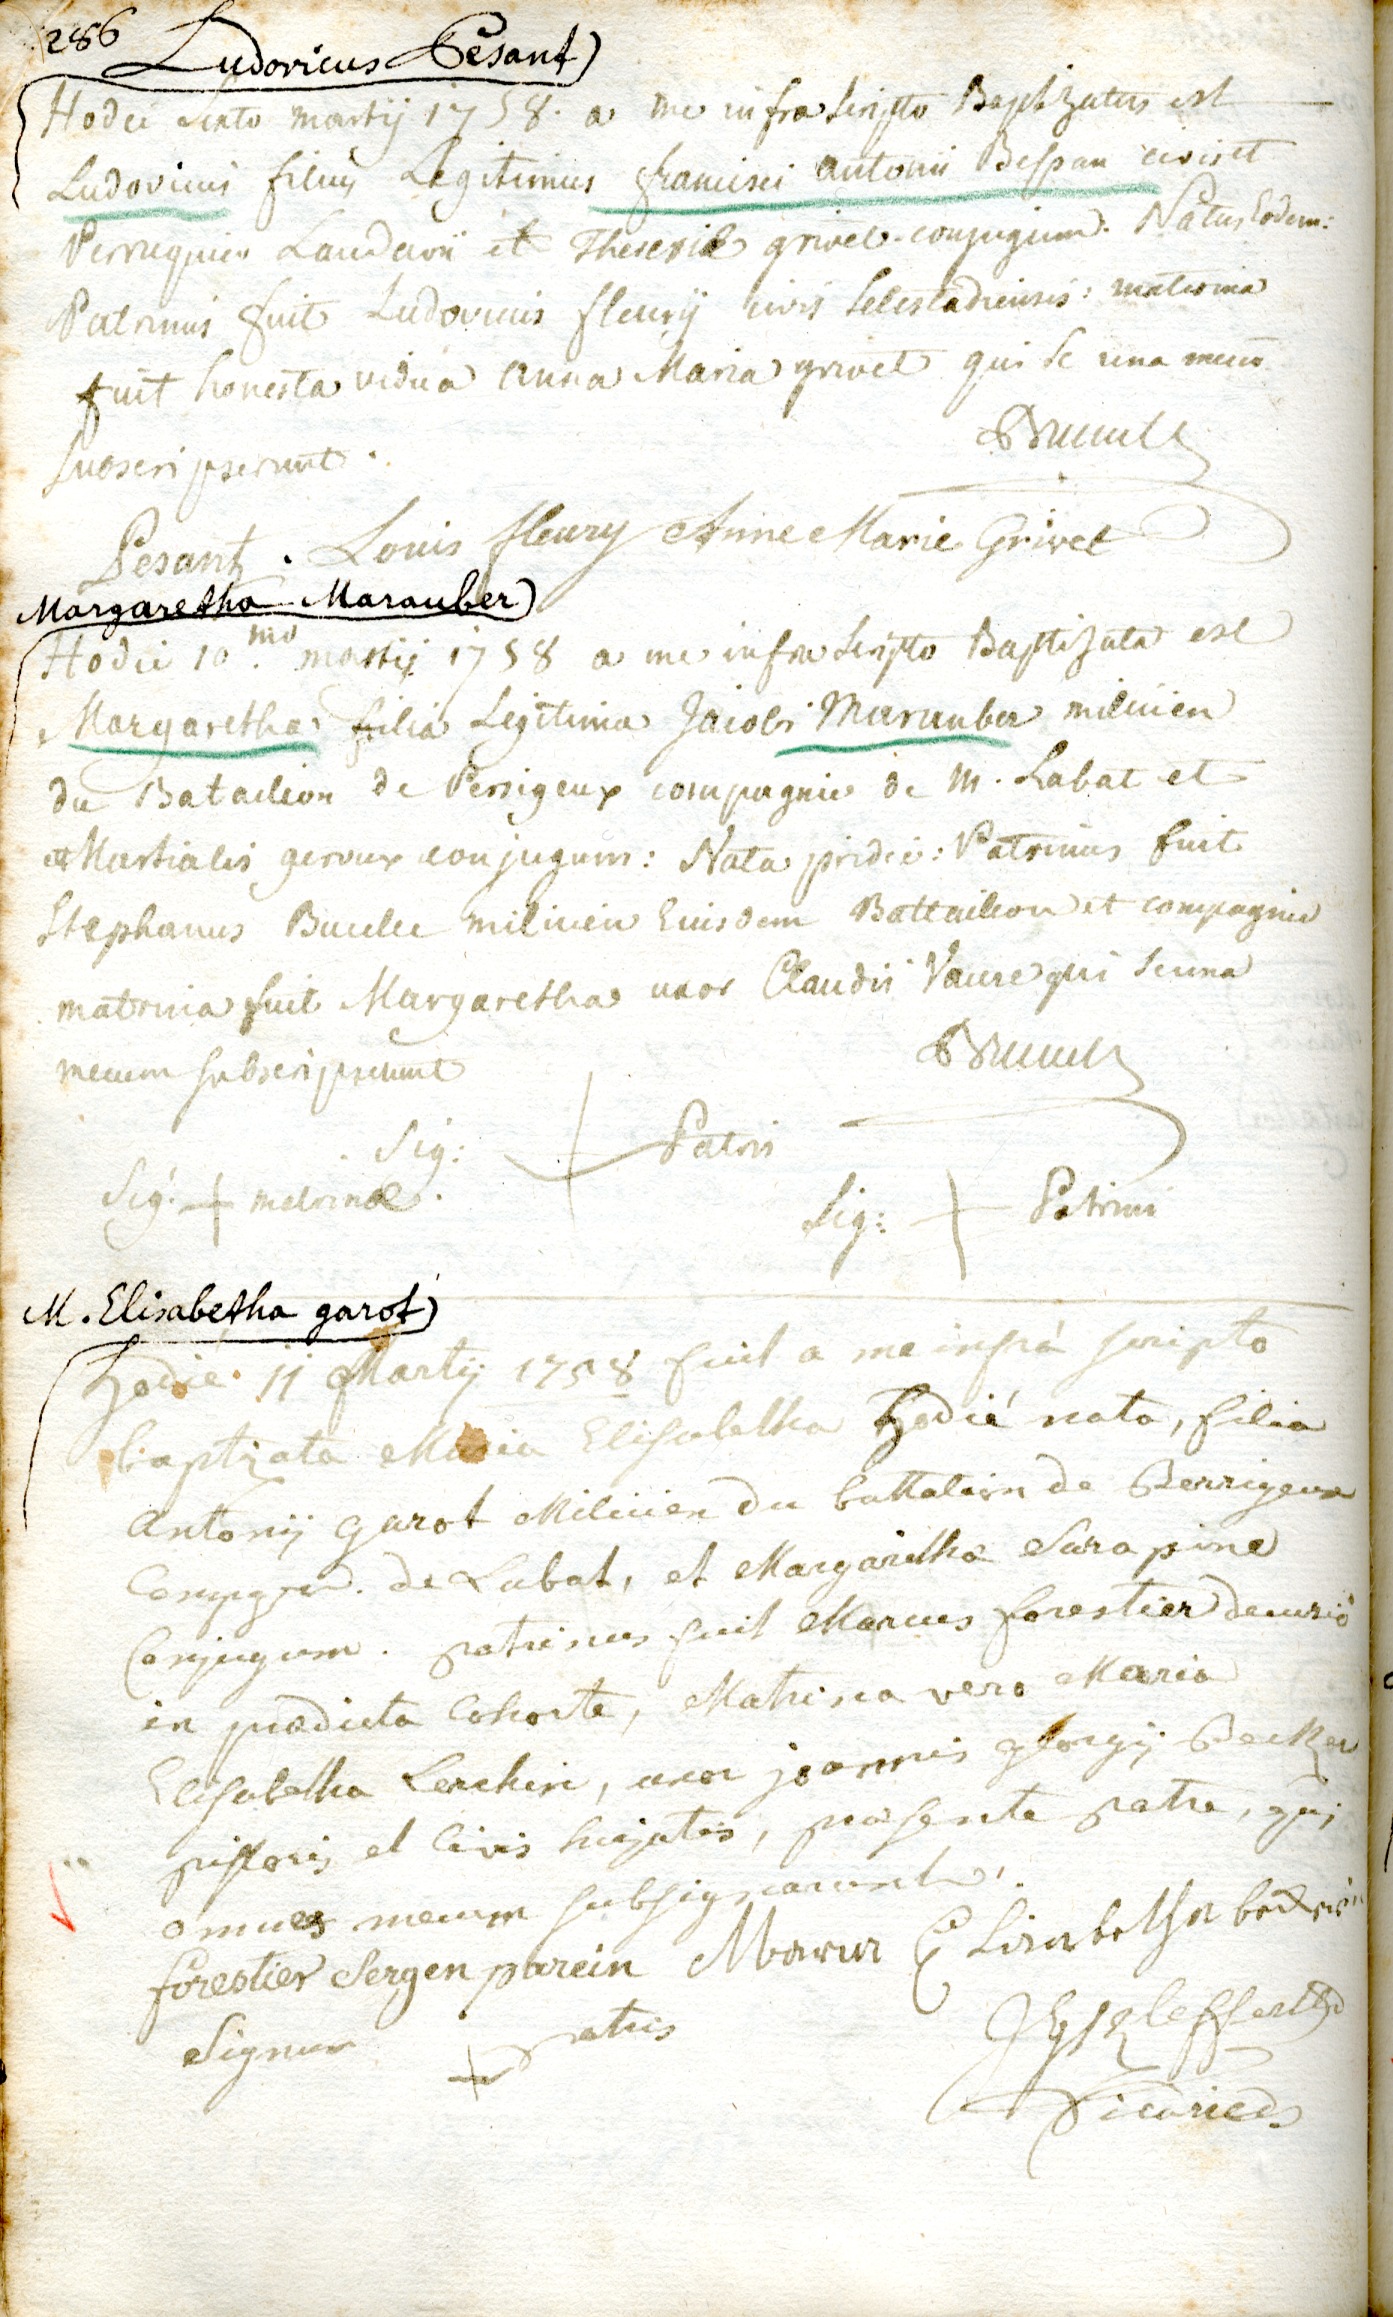 286
Ludovicus Pesant
Hodie sexto martij 1758. a me infra scripto Baptizatus est
Ludovicus filius Legitimus francisci antonii civis et
Perruquier Laudavii et Theresiæ grivet conjugum. Natus Eodem:
Patrinus fuit Ludovicus fleury civis Selestadiensis: matrina
fuit honesta vidua anna Maria grivet qui se una mecum
subscripserunt.
Pesant. Louis fleury Anne Marie Grivet
Margaretha Marauber
Hodie 10mo martij 1758 a me infra scripto Baptizata est
Margaretha filia Legitima Jacobi Marauber milicien
du Batailion de Perrigeux compagnie de M. Labat et
Martialis conjugum: Nata pridie: Patrinus fuit
Stephanus milicien Eiusdem Battailion et compagnie
matrina fuit Margaretha uxor Claudii Vaure qui se una
mecum subscripserunt
Sig: Patris
Sig: matrinæ.
Sig: Patrini
M. Elisabetha garot
Hodié 11 Martij 1758 fuit a me infrá scripto
baptizata Maria Elisabetha Hodié nata, filia
antonij garot Milicien du battalion de Perrigeux
Compgnie. de Labat, et Margaritha Sarapine
Conjugum. patrinus fuit Marcus forestier decurio
in prædicta Cohorte, Matrina vero Maria
Elisabetha Lerchin, uxor joannis georgij Becker
pistoris et Civis hujatis, præsente patre, qui
omnes mecum subsignarunt.
forestier Sergen parein Elisabetha
Signum patris